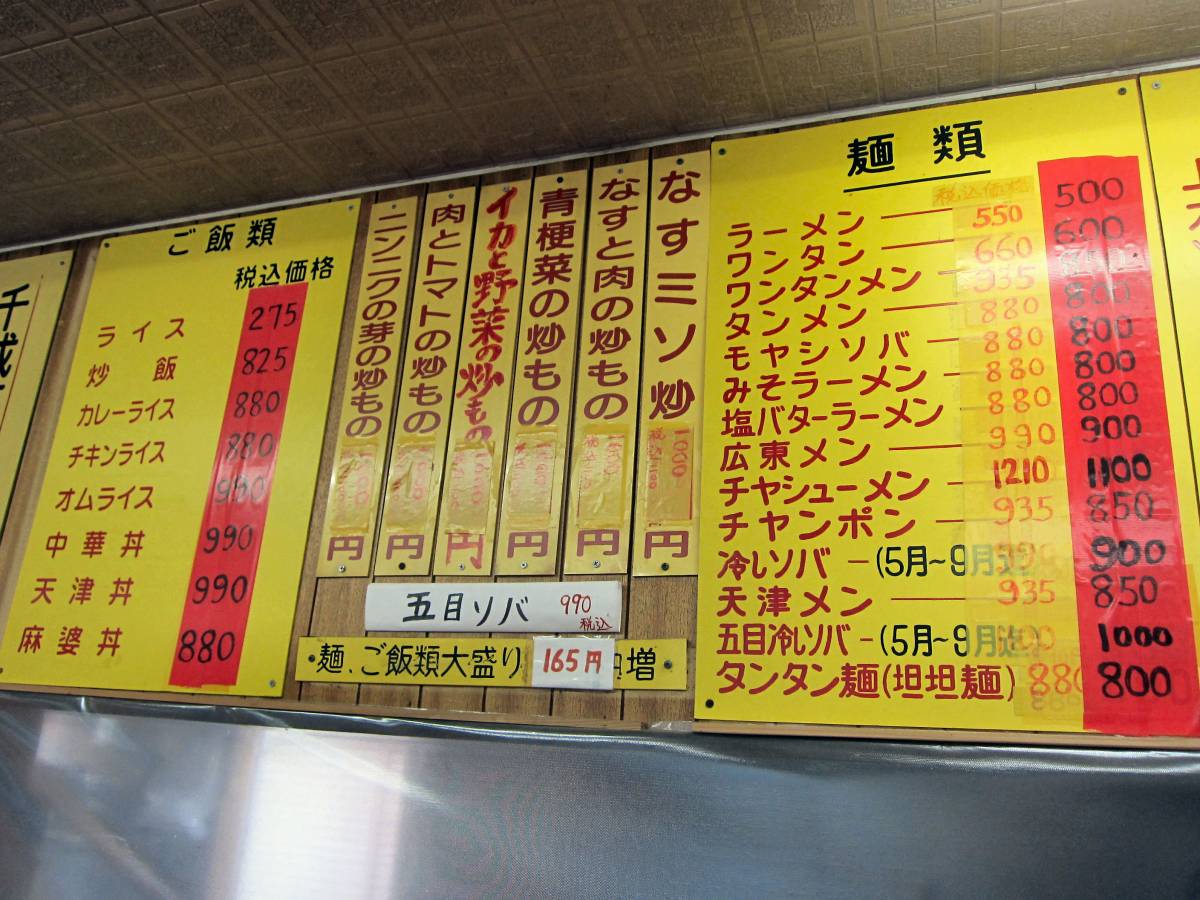 千成
ご飯類
税込価格
ライス 275
炒飯 825
カレーライス 880
チキンライス 880
オムライス
中華丼 990
天津丼 990
麻婆丼 880
ニンニクの芽の炒もの 円
肉とトマトの炒もの 円
イカと野菜の炒もの 円
青梗菜の炒もの 円
なすと肉の炒もの 円
なすミソ炒 円
五目ソバ 990 税込
麺、ご飯類大盛り 165円 増
麺類
税込価格
ラーメン 550 500
ワンタン 660 600
ワンタンメン 935 850
タンメン 880 800
モヤシソバ 880 800
みそラーメン 880 800
塩バターラーメン 880 800
広東メン 990 900
チャシューメン 1210 1100
チャンポン 935 850
冷しソバ-(5月~9月迄) 900
天津メン 935 850
五目冷しソバ-(5月~9月迄) 1000
タンタン麺(坦坦麺) 880 800